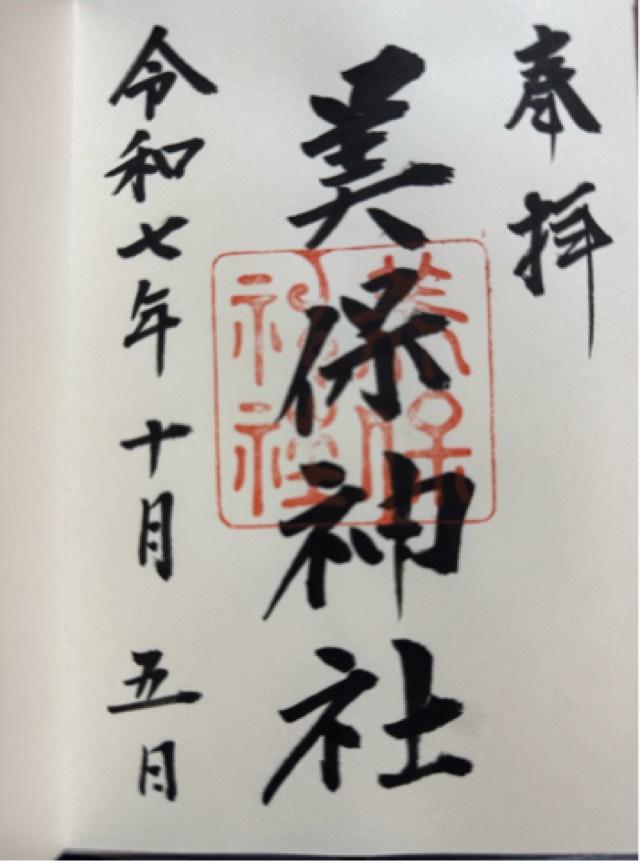 奉拝
美保神社
美保
神社
令和七年十月五日